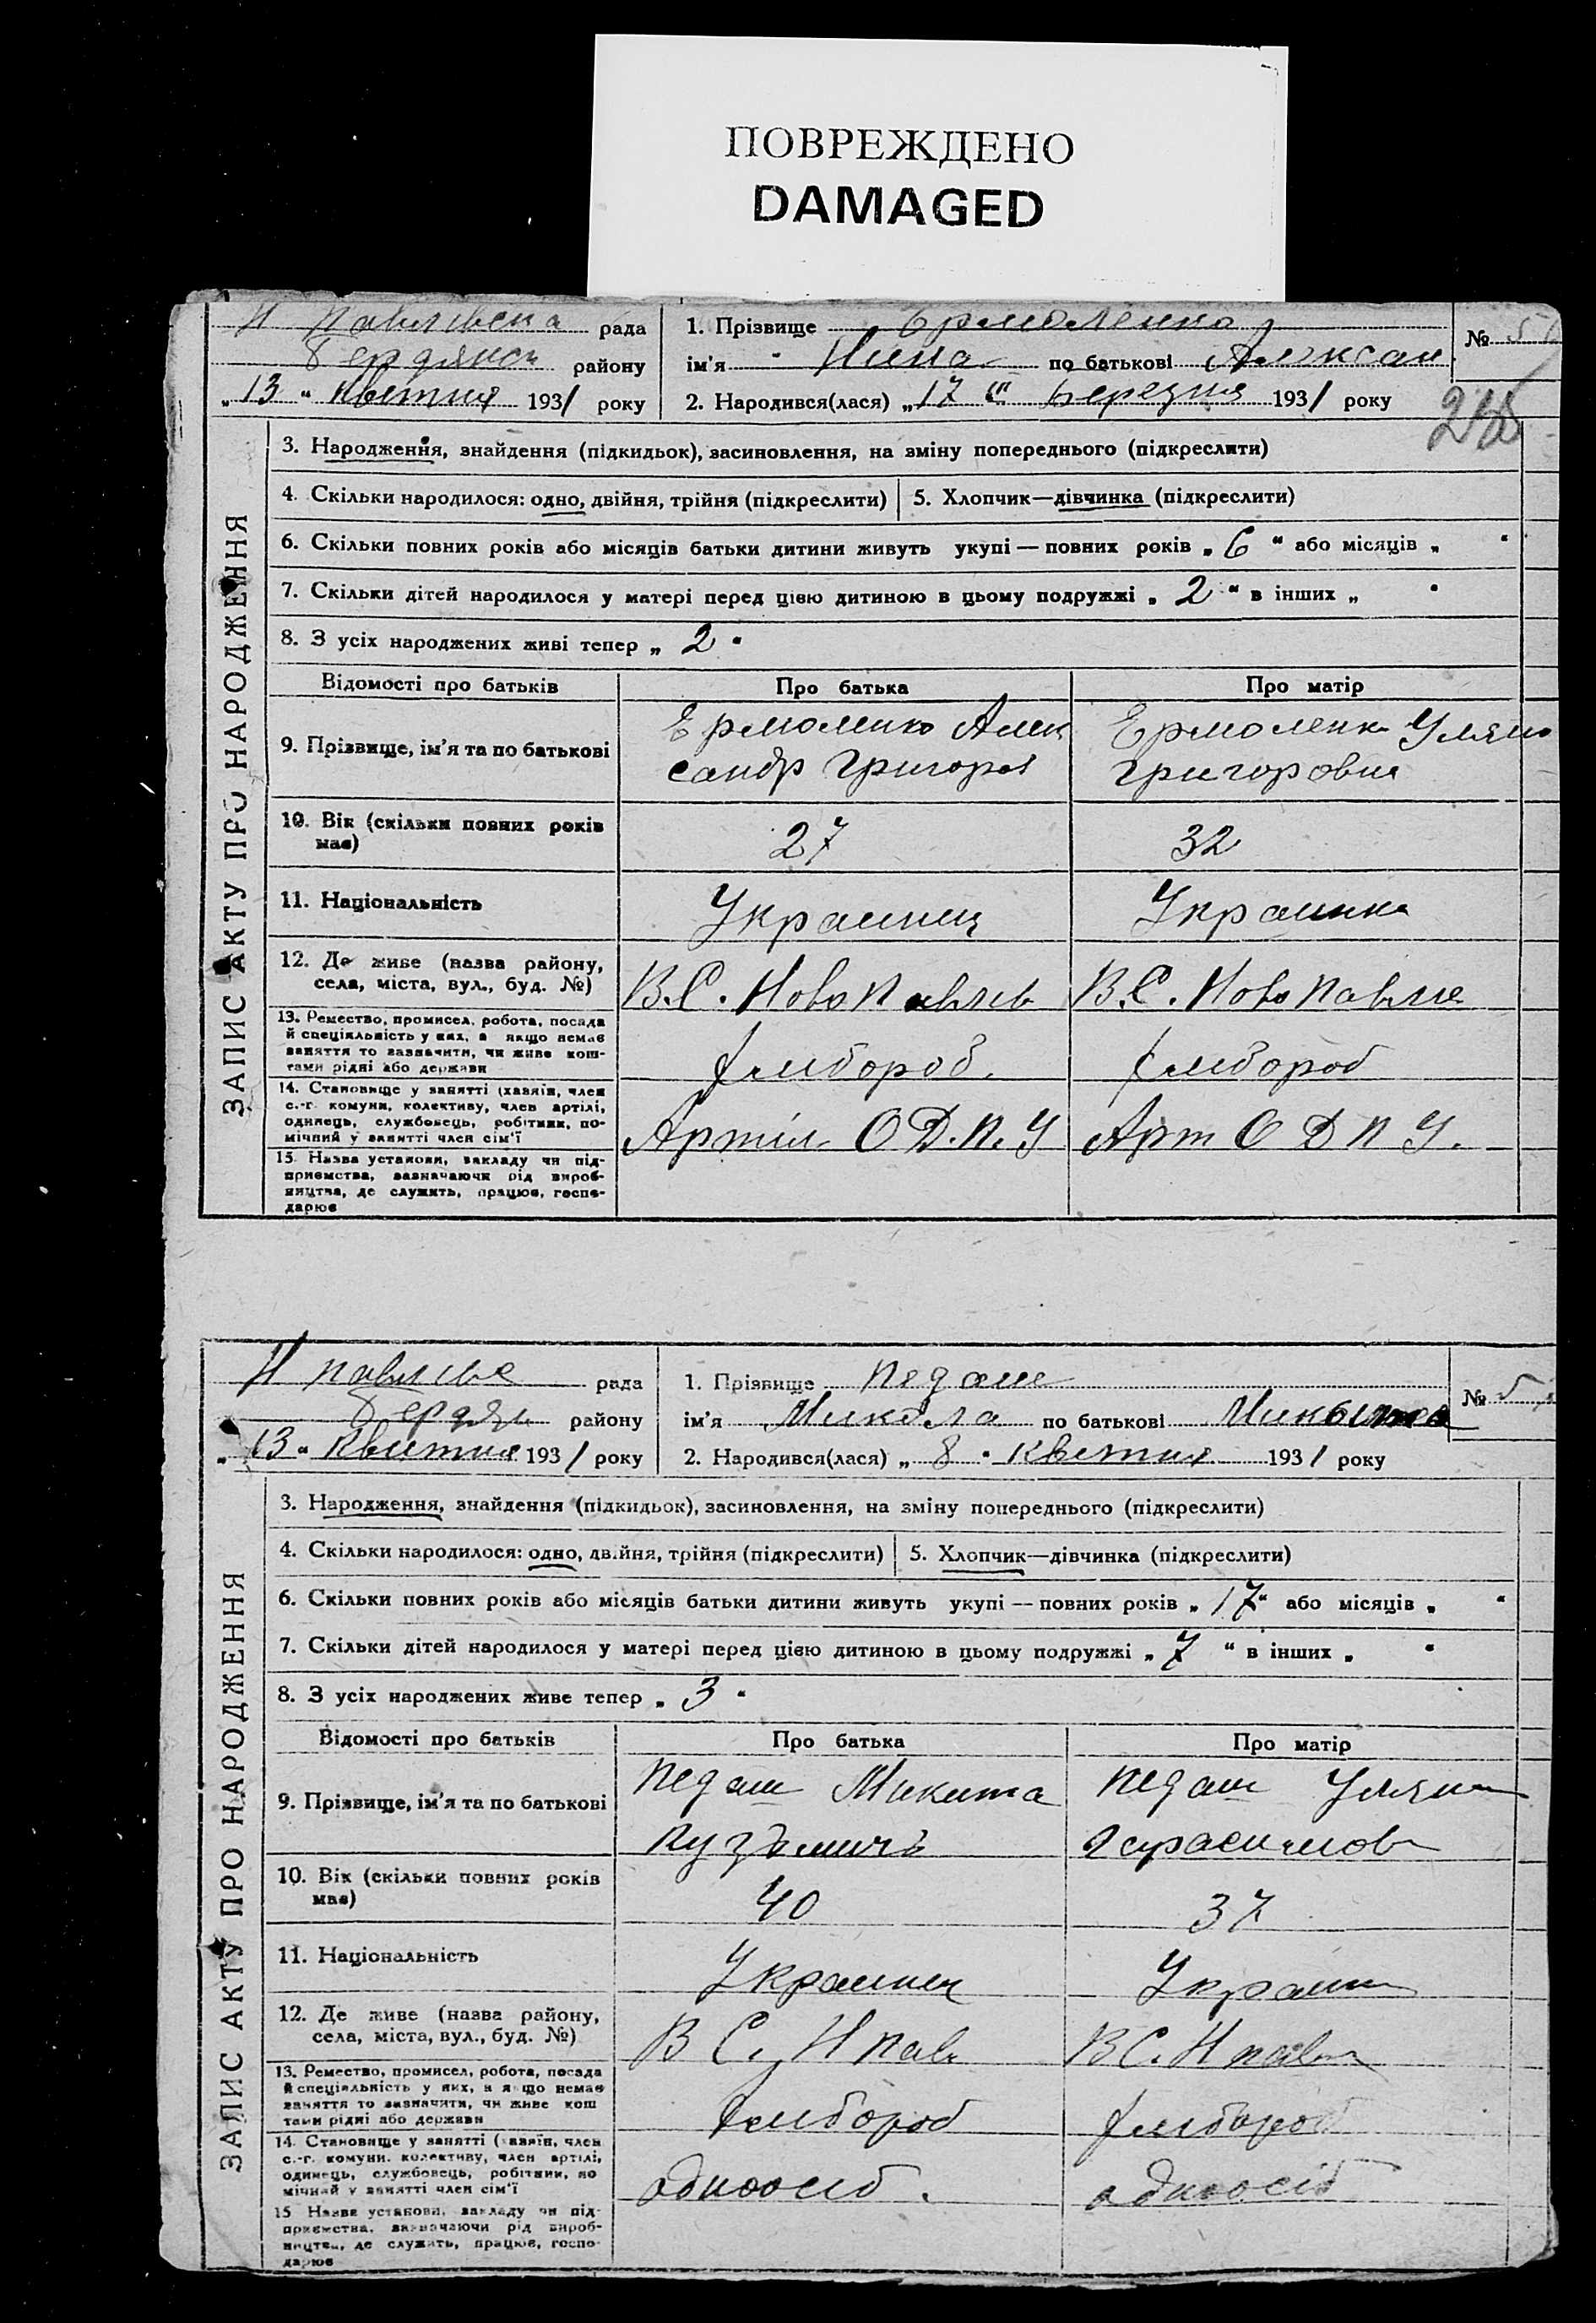 ПОВРЕЖДЕНО
DAMAGED
Н Павлівська рада
Бердянськ району
„13“ Квітня 1931 року
1. Прізвище Ермоленко
ім'я Нина по батькові Алексан.
2. Народився(лася) „17“ березня 1931 року
№ 5
ЗАПИС АКТУ ПРО НАРОДЖЕННЯ
3. Народження, знайдення (підкидьок), засиновлення, на зміну попереднього (підкреслити)
4. Скільки народилося: одно, двійня, трійня (підкреслити) 5. Хлопчик—дівчинка (підкреслити)
6. Скільки повних років або місяців батьки дитини живуть укупі — повних років „6“ або місяців „ “
7. Скільки дітей народилося у матері перед цією дитиною в цьому подружжі „2“ в інших „ “
8. З усіх народжених живі тепер „2“
Відомості про батьків Про батька Про матір
9. Прізвище, ім'я та по батькові
Ермоленко Алек
сандр Григоров
Ермоленко Уляна
Григоровна
10. Вік (скільки повних років
має)
27 32
11. Національність
Украинец Украинка
12. Де живе (назва району,
села, міста, вул., буд. №)
В.С. Ново Павлів В.С. Ново Павлів
13. Ремество, промисел, робота, посада
й спеціяльність у них, а якщо немає
заняття то зазначити, чи живе кош-
тами рідні або держави
хлибороб. хлибороб
14. Становище у занятті (хазяїн, член
с.-г. комуни, колективу, член артілі,
одинець, службовець, робітник, по-
мічний у занятті член сім'ї
Артіл. О Д.П.У Арт О Д П У.
15. Назва установи, закладу чи під-
приємства, зазначаючи рід вироб-
ництва, де служить, працює, госпо-
дарює
Н Павлівс рада
Бердян району
„13“ Квитня 1931 року
1. Прізвище Педаш
ім'я Микола по батькові
2. Народився(лася) „8“ Квитня 1931 року
№ 5
ЗАПИС АКТУ ПРО НАРОДЖЕННЯ
3. Народження, знайдення (підкидьок), засиновлення, на зміну попереднього (підкреслити)
4. Скільки народилося: одно, двійня, трійня (підкреслити) 5. Хлопчик—дівчинка (підкреслити)
6. Скільки повних років або місяців батьки дитини живуть укупі — повних років „17“ або місяців „ “
7. Скільки дітей народилося у матері перед цією дитиною в цьому подружжі „7“ в інших „ “
8. З усіх народжених живе тепер „3“
Відомості про батьків Про батька Про матір
9. Прізвище, ім'я та по батькові
Педаш Микита
Кузьмичь
Педаш Уляна
Герасимов
10. Вік (скільки повних років
має)
40 37
11. Національність
Украинец Украин
12. Де живе (назва району,
села, міста, вул., буд. №)
В С. Н Пав. В С. Н Павл
13. Ремество, промисел, робота, посада
й спеціяльність у них, а якщо немає
заняття то зазначити, чи живе кош
тами рідні або держави
хлибороб хлибороб
14. Становище у занятті (хазяїн, член
с.-г. комуни, колективу, член артілі,
одинець, службовець, робітник, по
мічний у занятті член сім'ї
одноосіб. одноосіб
15 Назва установи, закладу чи під-
приємства, зазначаючи рід вироб-
ництва, де служить, працює, госпо-
дарює